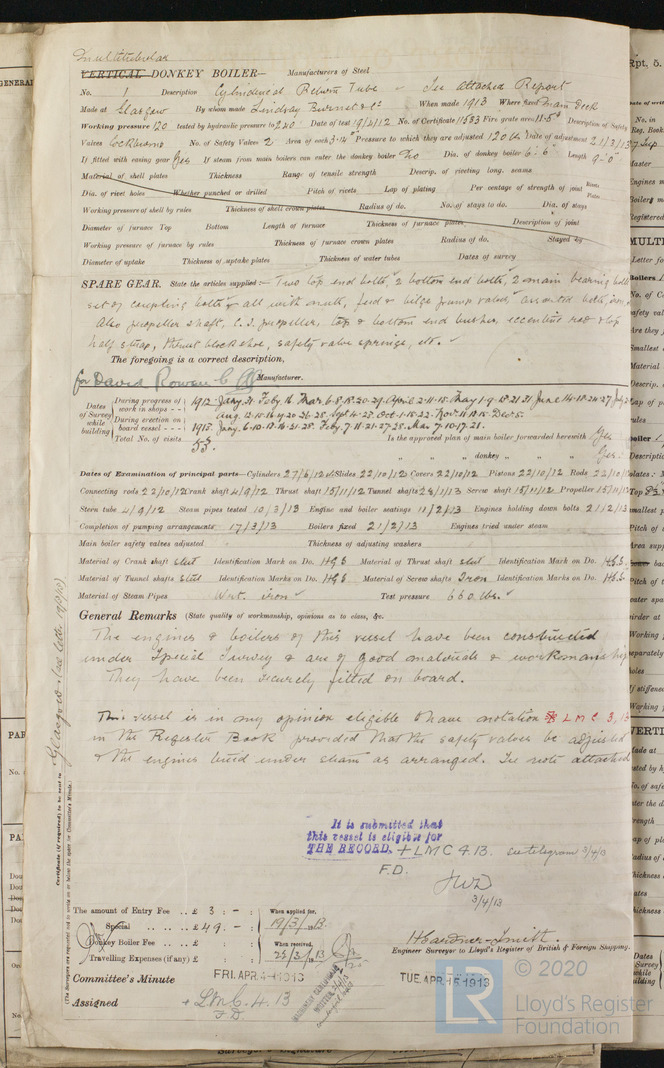 Multitubular
VERTICAL DONKEY BOILER— Manufacturers of Steel
No. 1 Description Cylindrical Return Tube – See Attached Report
Made at Glasgow By whom made Lindsay Burnet & Co When made 1913 Where fixed Main Deck
Working pressure 120 tested by hydraulic pressure to 240 Date of test 19/4/12 No. of Certificate 11583 Fire grate area Description of Safety
Valves Cockburns No. of Safety Valves 2 Area of each 3.14 Pressure to which they are adjusted 120 lbs Date of adjustment 21/3/13
If fitted with easing gear Yes If steam from main boilers can enter the donkey boiler No Dia. of donkey boiler 6'-6" Length 9'-0"
Material of shell plates Thickness Range of tensile strength Descrip. of riveting long. seams
Dia. of rivet holes Whether punched or drilled Pitch of rivets Lap of plating Per centage of strength of joint Rivets Plates
Working pressure of shell by rules Thickness of shell crown plates Radius of do. No. of stays to do. Dia. of stays
Diameter of furnace Top Bottom Length of furnace Thickness of furnace plates Description of joint
Working pressure of furnace by rules Thickness of furnace crown plates Radius of do. Stayed by
Diameter of uptake Thickness of uptake plates Thickness of water tubes Dates of survey
SPARE GEAR. State the articles supplied:— Two top end bolts, 2 bottom end bolts, 2 main bearing bolts
set of coupling bolts & all with nuts, feed & bilge pump valves, assorted bolts, iron
Also propeller shaft, C.I. propeller, top & bottom end bushes, eccentric rod & top
half strap, thrust block shoe, safety valve springs, etc.
The foregoing is a correct description,
for David Rowan & Co Manufacturer.
Dates of Survey while building
During progress of work in shops -- 1912 Jany. 31 Feby 16 Mar 6.8.18.20.29. April 2.11.15. May 1.9.15.21.31 June 14.18.24.27 July
Aug. 12.15.16.19.20.26.28. Sept. 4.25. Oct. 1.15.22. Nov. Dec. 5.
During erection on board vessel --- 1913 Jany. 6.10.13.16.21.28. Feby. 7.11.21.27.28. Mar. 7.10.17.21.
Total No. of visits 55 Is the approved plan of main boiler forwarded herewith Yes
" " " donkey " " " Yes
Dates of Examination of principal parts—Cylinders 27/6/12 Slides 22/10/12 Covers 22/10/12 Pistons 22/10/12 Rods 22/10/12
Connecting rods 22/10/12 Crank shaft 4/9/12 Thrust shaft 15/11/12 Tunnel shafts 28/1/13 Screw shaft 15/11/12 Propeller 15/11/12
Stern tube 4/9/12 Steam pipes tested 10/3/13 Engine and boiler seatings 11/2/13 Engines holding down bolts 21/2/13
Completion of pumping arrangements 17/3/13 Boilers fixed 21/2/13 Engines tried under steam
Main boiler safety valves adjusted Thickness of adjusting washers
Material of Crank shaft Steel Identification Mark on Do. HGS Material of Thrust shaft Steel Identification Mark on Do. HGS
Material of Tunnel shafts Steel Identification Marks on Do. HGS Material of Screw shafts Iron Identification Marks on Do. HGS
Material of Steam Pipes Wrt. iron Test pressure 660 lbs.
General Remarks (State quality of workmanship, opinions as to class, &c.
The engines & boilers of this vessel have been constructed
under Special Survey & are of good materials & workmanship
They have been securely fitted on board.
This vessel is in my opinion eligible to have notation LMC 3.13
in the Register Book provided that the safety valves be adjusted
& the engines tried under steam as arranged. See note attached
It is submitted that
this vessel is eligible for
THE RECORD. + LMC 4.13. See telegram 3/4/13
F.D.
JWD
3/4/13
Glasgow (see letter 19/3/13)
Certificate (if required) to be sent to
(The Surveyors are requested not to write on or below the space for Committee's Minute.)
The amount of Entry Fee .. £ 3 : – : When applied for,
Special .. £ 49 : – : 19/3/1913
Donkey Boiler Fee .. £ : : When received,
Travelling Expenses (if any) £ : : 25/3/1913
H Gardner-Smith.
Engineer Surveyor to Lloyd's Register of British & Foreign Shipping.
Committee's Minute FRI. APR. 4-1913 TUE. APR. 15 1913
Assigned + LMC. 4. 13
F.D.
© 2020
LR
Lloyd's Register
Foundation